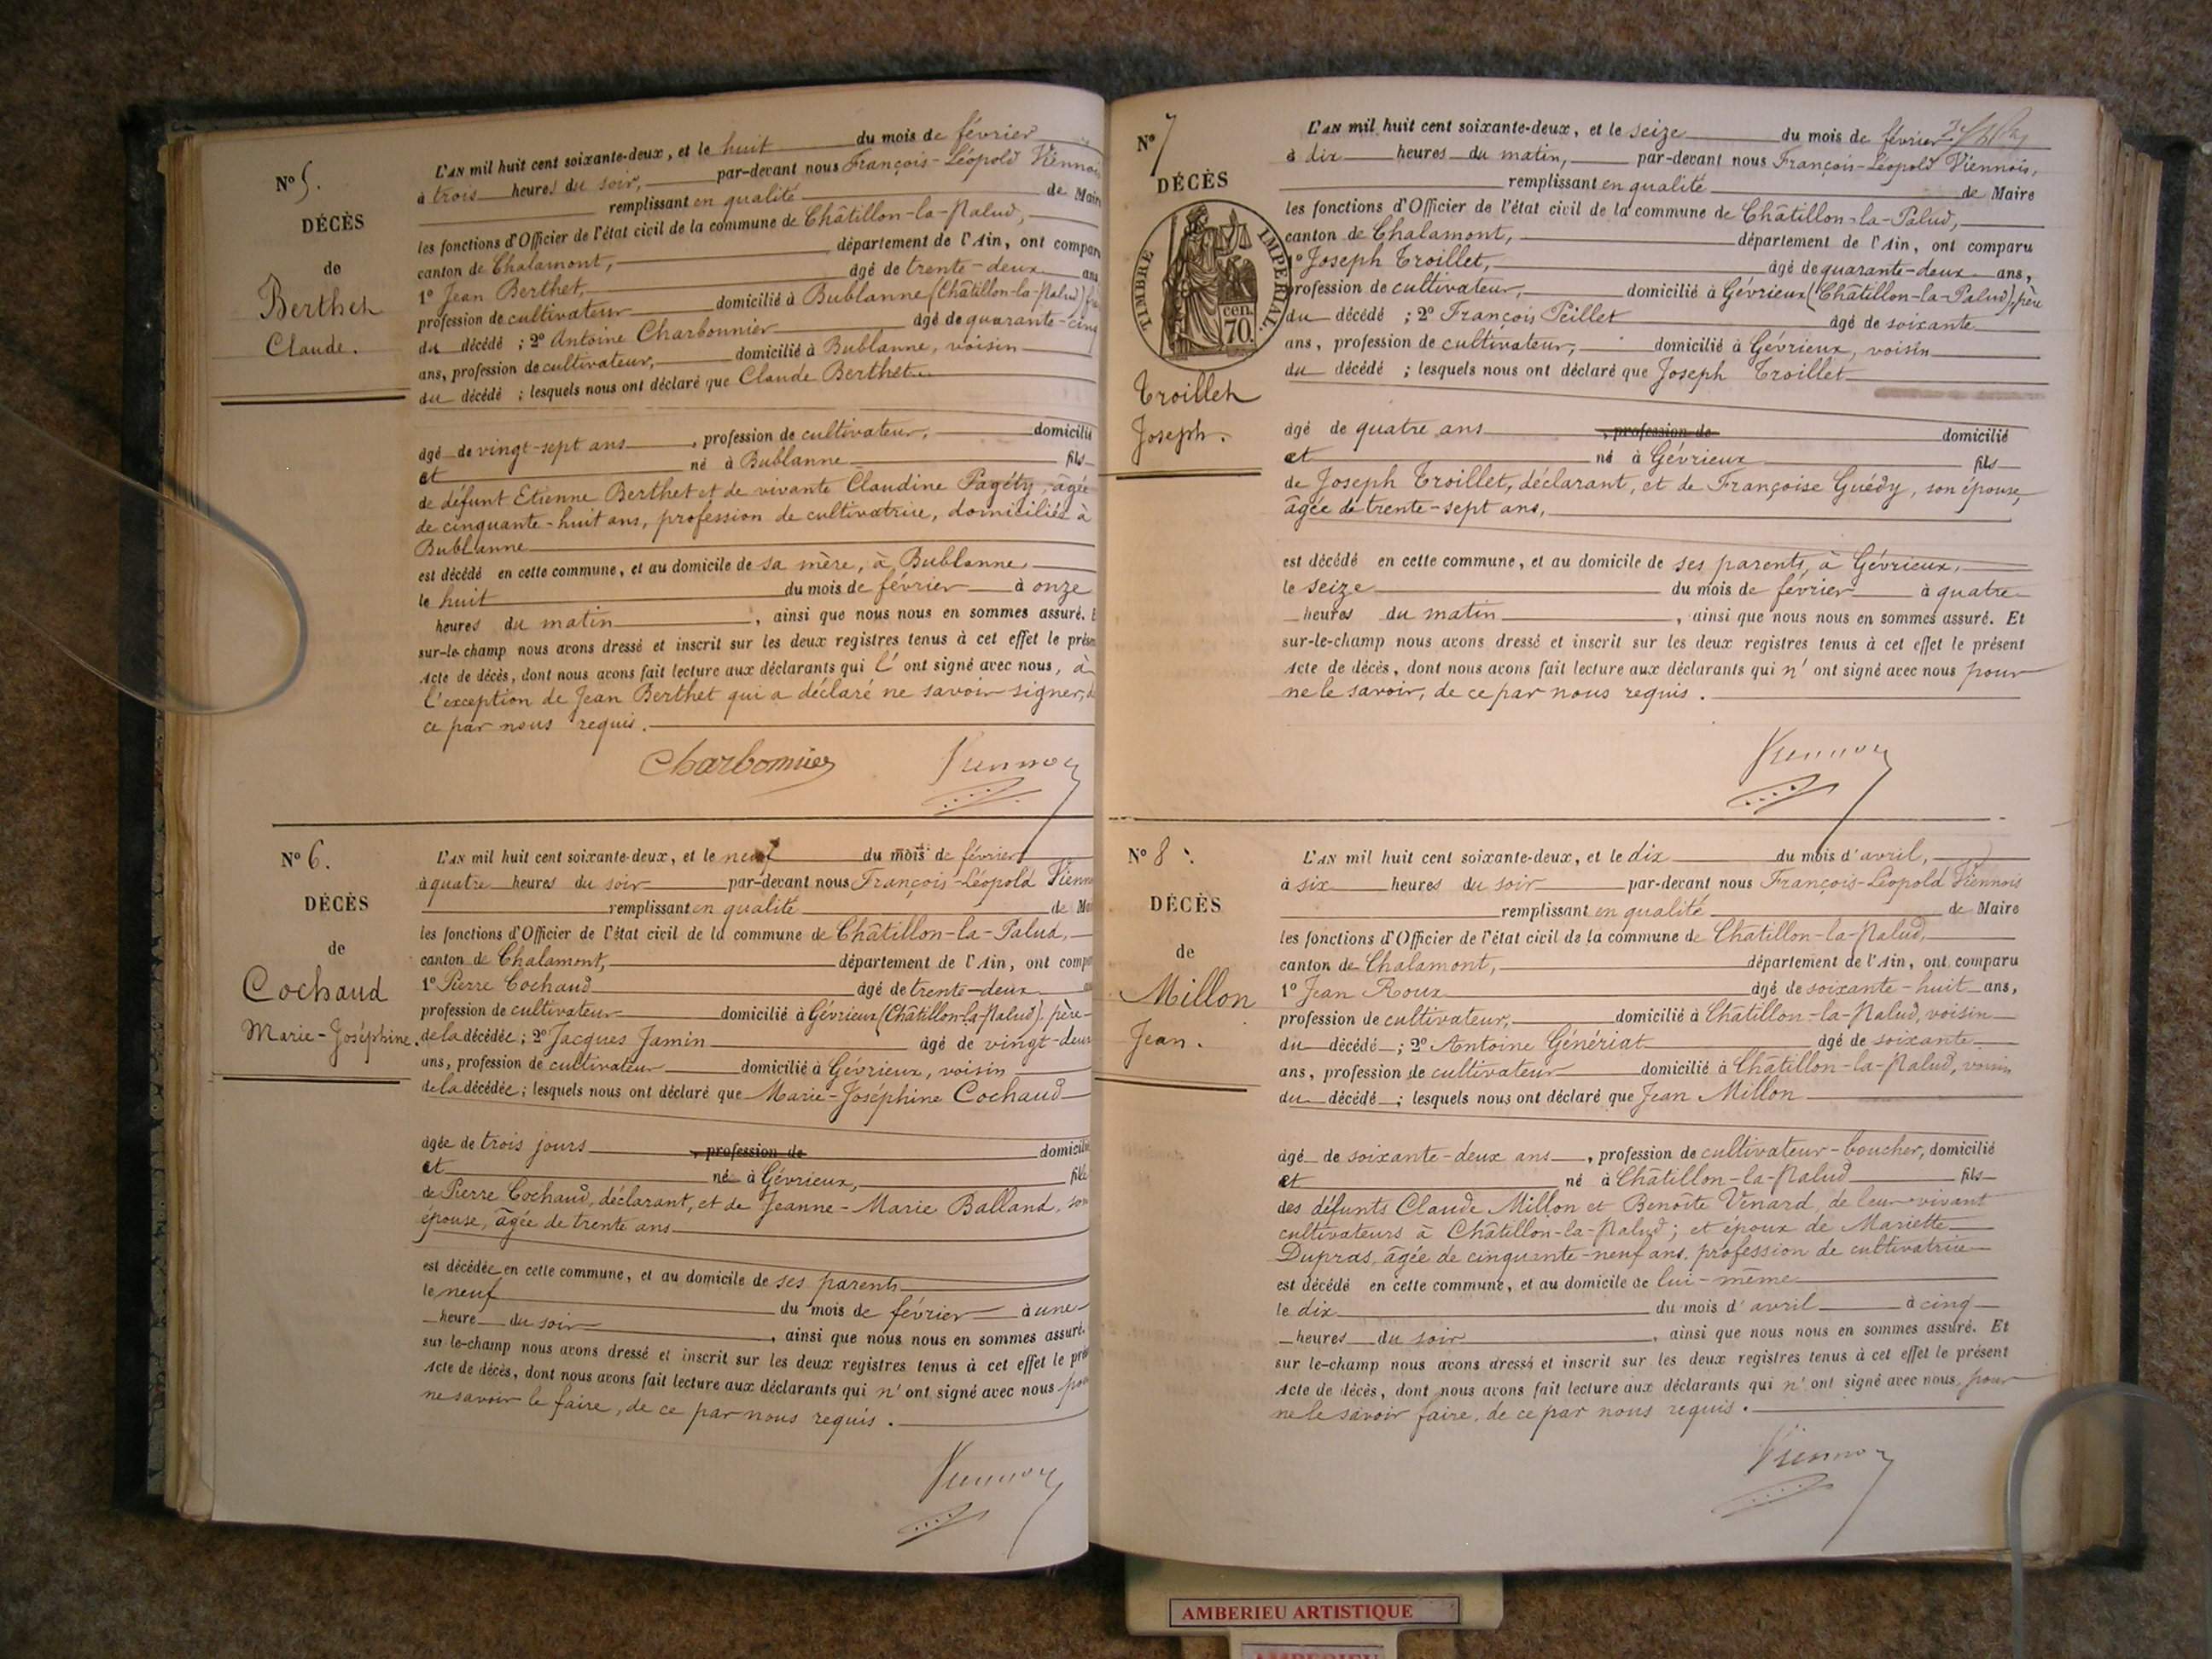 Nº 5.
DÉCÈS
de
Berthet
Claude.
L'AN mil huit cent soixante-deux, et le huit du mois de février
à trois heures du soir, par-devant nous François-Léopold Viennois
remplissant en qualité de Maire
les fonctions d'Officier de l'état civil de la commune de Châtillon-la-Palud,
canton de Chalamont, département de l'Ain, ont comparu
1º Jean Berthet, âgé de trente-deux ans
profession de cultivateur domicilié à Bublanne (Châtillon-la-Palud)
du décédé ; 2º Antoine Charbonnier âgé de quarante-cinq
ans, profession de cultivateur, domicilié à Bublanne, voisin
du décédé ; lesquels nous ont déclaré que Claude Berthet
âgé de vingt-sept ans, profession de cultivateur, domicilié
et né à Bublanne fils
de défunt Etienne Berthet et de vivante Claudine Pagéty, âgée
de cinquante-huit ans, profession de cultivatrice, domiciliée à
Bublanne
est décédé en cette commune, et au domicile de sa mère, à Bublanne
le huit du mois de février à onze
heures du matin, ainsi que nous nous en sommes assuré. E
sur-le-champ nous avons dressé et inscrit sur les deux registres tenus à cet effet le présen
Acte de décès, dont nous avons fait lecture aux déclarants qui l'ont signé avec nous, à
l'exception de Jean Berthet qui a déclaré ne savoir signer, de
ce par nous requis.
Charbonnier Viennois
Nº 6.
DÉCÈS
de
Cochaud
Marie-Joséphine.
L'AN mil huit cent soixante-deux, et le neuf du mois de février
à quatre heures du soir par-devant nous François-Léopold Vienn
remplissant en qualité de Mai
les fonctions d'Officier de l'état civil de la commune de Châtillon-la-Palud,
canton de Chalamont, département de l'Ain, ont compa
1º Pierre Cochaud âgé de trente-deux
profession de cultivateur domicilié à Gévrieux (Châtillon-la-Palud). père
de la décédée ; 2º Jacques Jamin âgé de vingt-deux
ans, profession de cultivateur domicilié à Gévrieux, voisin
de la décédée ; lesquels nous ont déclaré que Marie-Joséphine Cochaud
âgée de trois jours, profession de domicilié
et né à Gévrieux, fille
de Pierre Cochaud, déclarant, et de Jeanne-Marie Balland, son
épouse, âgée de trente ans
est décédée en cette commune, et au domicile de ses parents
le neuf du mois de février à une
heure du soir, ainsi que nous nous en sommes assuré.
sur le-champ nous avons dressé et inscrit sur les deux registres tenus à cet effet le pré
Acte de décès, dont nous avons fait lecture aux déclarants qui n'ont signé avec nous pou
ne savoir le faire, de ce par nous requis.
Viennois
Nº 7
DÉCÈS
TIMBRE IMPERIAL.
cen.
70.
Troillet
Joseph.
L'AN mil huit cent soixante-deux, et le seize du mois de février
à dix heures du matin, par-devant nous François-Léopold Viennois,
remplissant en qualité de Maire
les fonctions d'Officier de l'état civil de la commune de Châtillon-la-Palud,
canton de Chalamont, département de l'Ain, ont comparu
1º Joseph Troillet, âgé de quarante-deux ans,
profession de cultivateur, domicilié à Gévrieux (Châtillon-la-Palud), père
du décédé ; 2º François Peillet âgé de soixante
ans, profession de cultivateur, domicilié à Gévrieux, voisin
du décédé ; lesquels nous ont déclaré que Joseph Troillet
âgé de quatre ans, profession de domicilié
et né à Gévrieux fils
de Joseph Troillet, déclarant, et de Françoise Guédy, son épouse,
âgée de trente-sept ans,
est décédé en cette commune, et au domicile de ses parents, à Gévrieux,
le seize du mois de février à quatre
heures du matin, ainsi que nous nous en sommes assuré. Et
sur-le-champ nous avons dressé et inscrit sur les deux registres tenus à cet effet le présent
Acte de décès, dont nous avons fait lecture aux déclarants qui n'ont signé avec nous pour
ne le savoir, de ce par nous requis.
Viennois
Nº 8.
DÉCÈS
de
Millon
Jean.
L'AN mil huit cent soixante-deux, et le dix du mois d'avril,
à six heures du soir par-devant nous François-Léopold Viennois
remplissant en qualité de Maire
les fonctions d'Officier de l'état civil de la commune de Châtillon-la-Palud,
canton de Chalamont, département de l'Ain, ont comparu
1º Jean Roux âgé de soixante-huit ans,
profession de cultivateur, domicilié à Châtillon-la-Palud, voisin
du décédé ; 2º Antoine Génériat âgé de soixante
ans, profession de cultivateur domicilié à Châtillon-la-Palud, voisin
du décédé ; lesquels nous ont déclaré que Jean Millon
âgé de soixante-deux ans, profession de cultivateur-boucher, domicilié
et né à Châtillon-la-Palud fils
des défunts Claude Millon et Benoîte Venard, de leur vivant
cultivateurs à Châtillon-la-Palud ; et époux de Mariette
Dupras, âgée de cinquante-neuf ans, profession de cultivatrice
est décédé en cette commune, et au domicile de lui-même
le dix du mois d'avril à cinq
heures du soir, ainsi que nous nous en sommes assuré. Et
sur le-champ nous avons dressé et inscrit sur les deux registres tenus à cet effet le présent
Acte de décès, dont nous avons fait lecture aux déclarants qui n'ont signé avec nous pour
ne le savoir faire, de ce par nous requis.
Viennois
AMBERIEU ARTISTIQUE
AMBERIEU